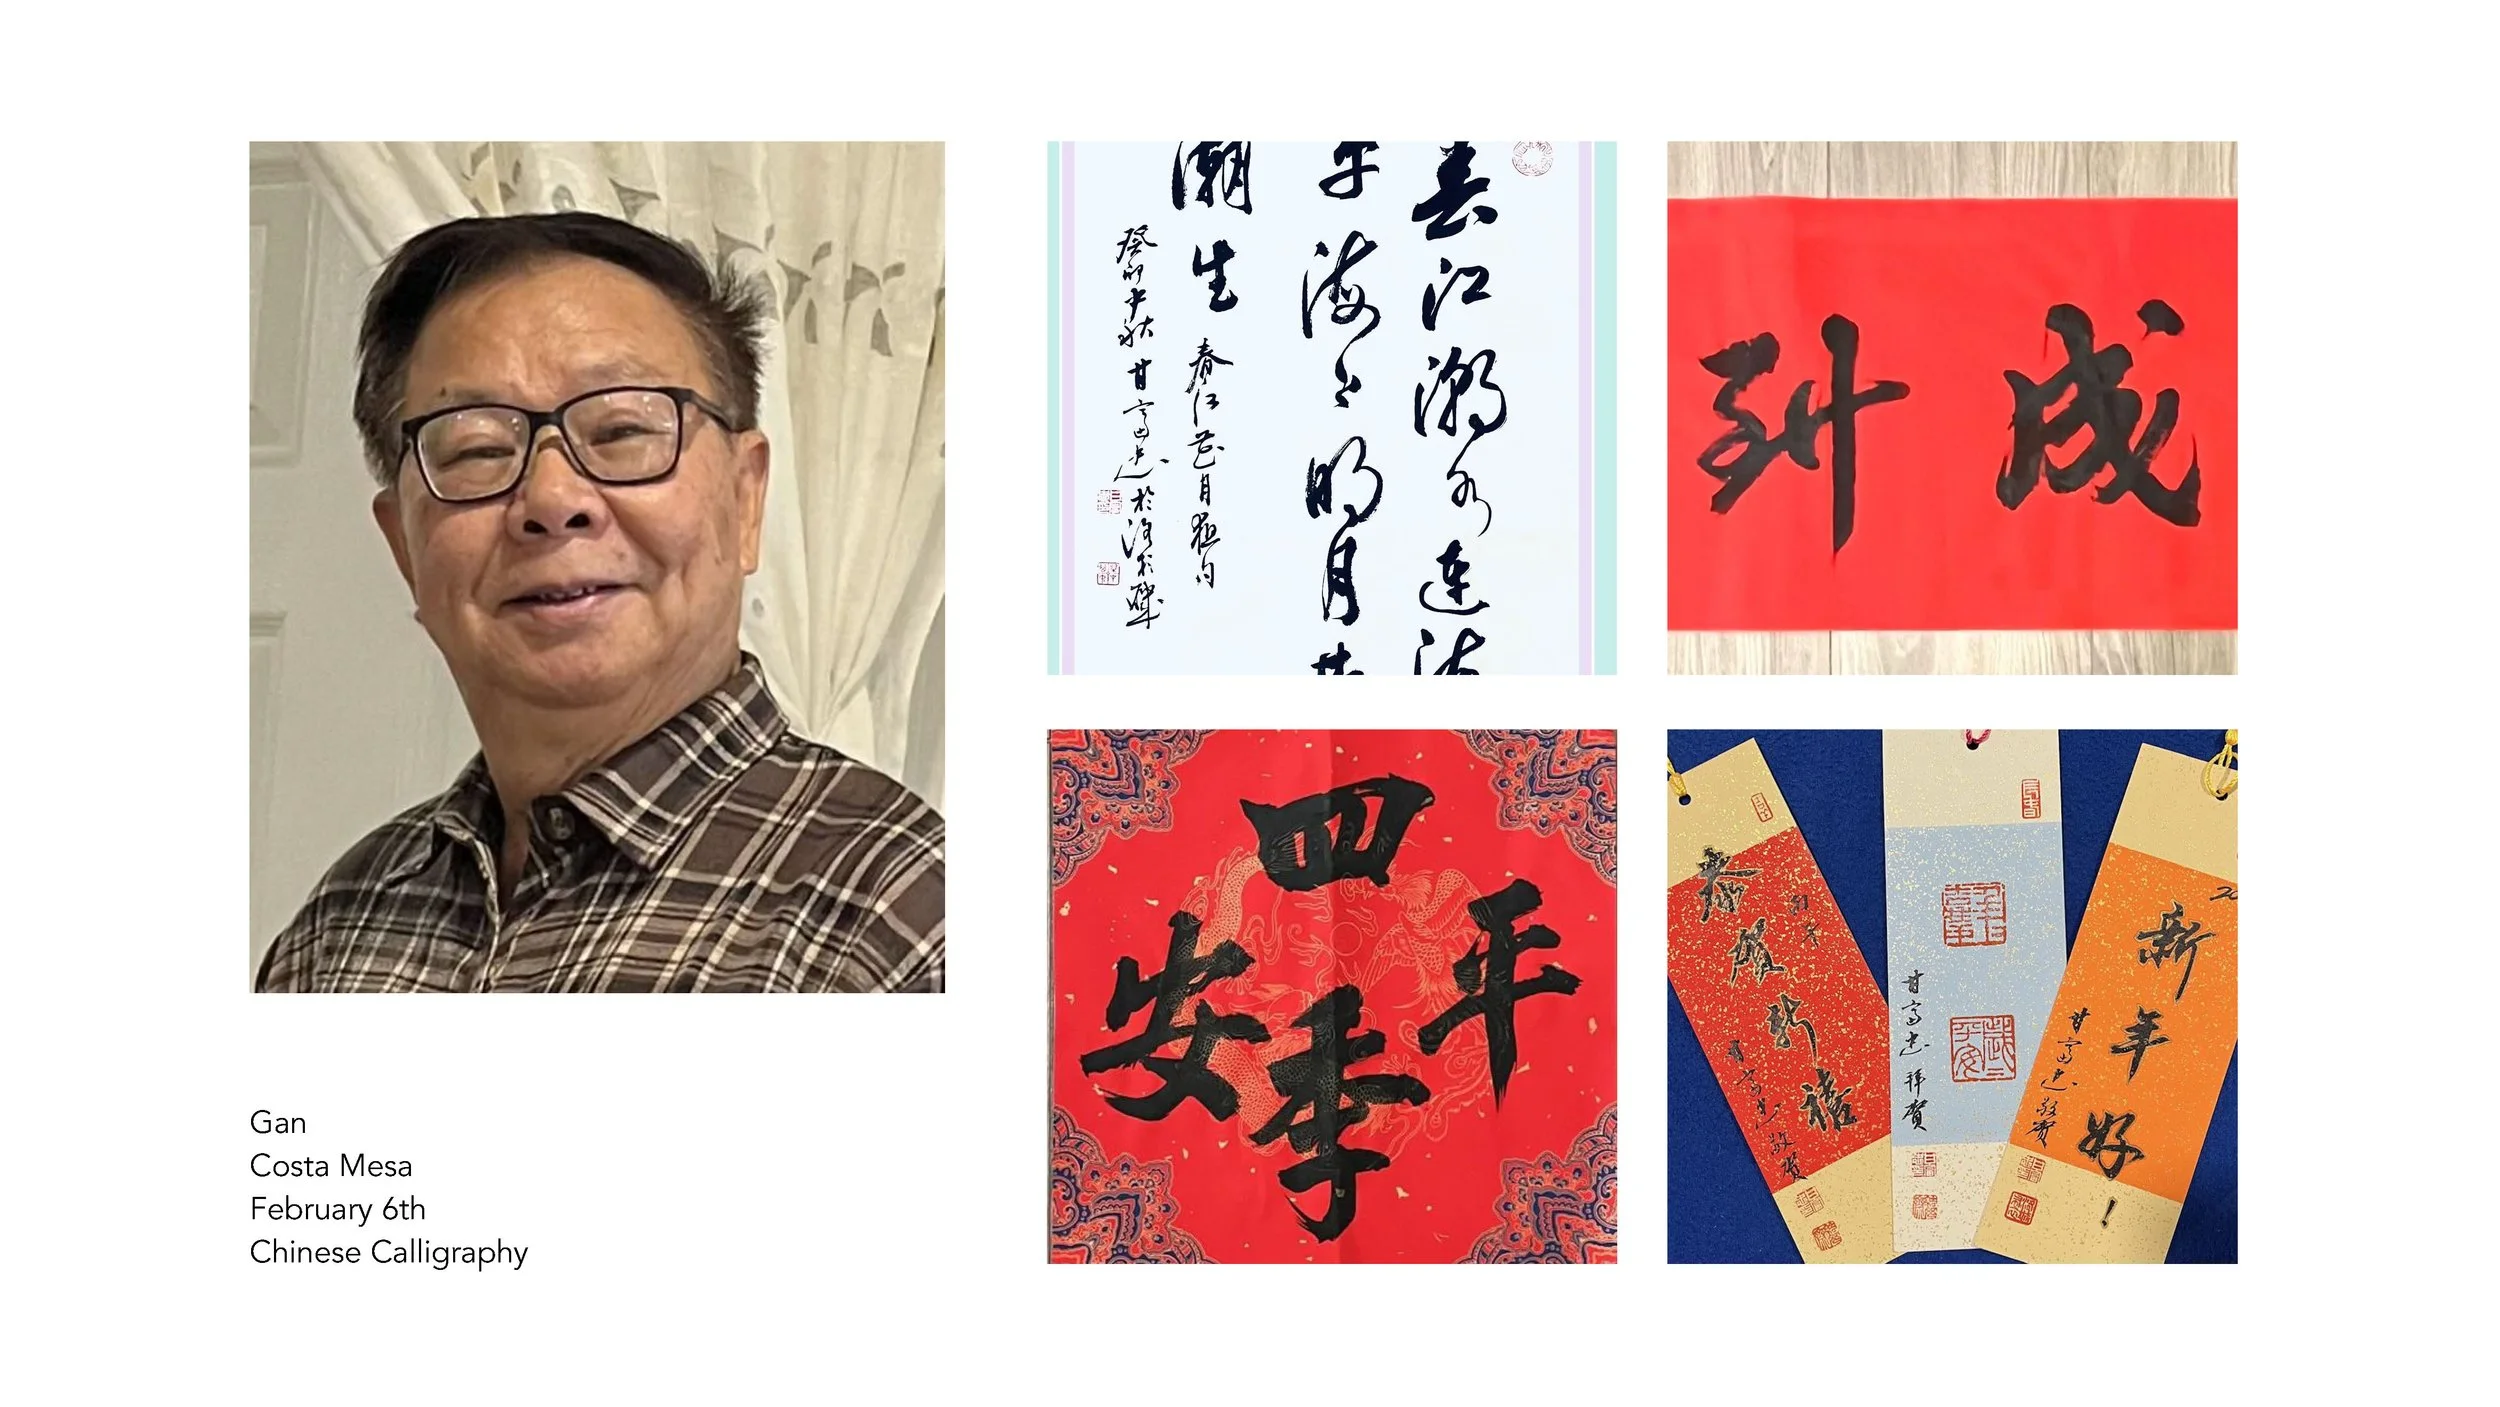 Gan
Costa Mesa
February 6th
Chinese Calligraphy
春江潮水連海
平海上明月共
潮生
春江花月夜句
癸卯中秋甘富忠於洛杉磯
到成
四季平安
恭賀新禧
甘富忠敬賀
甘富忠拜賀
新年好！
甘富忠敬賀